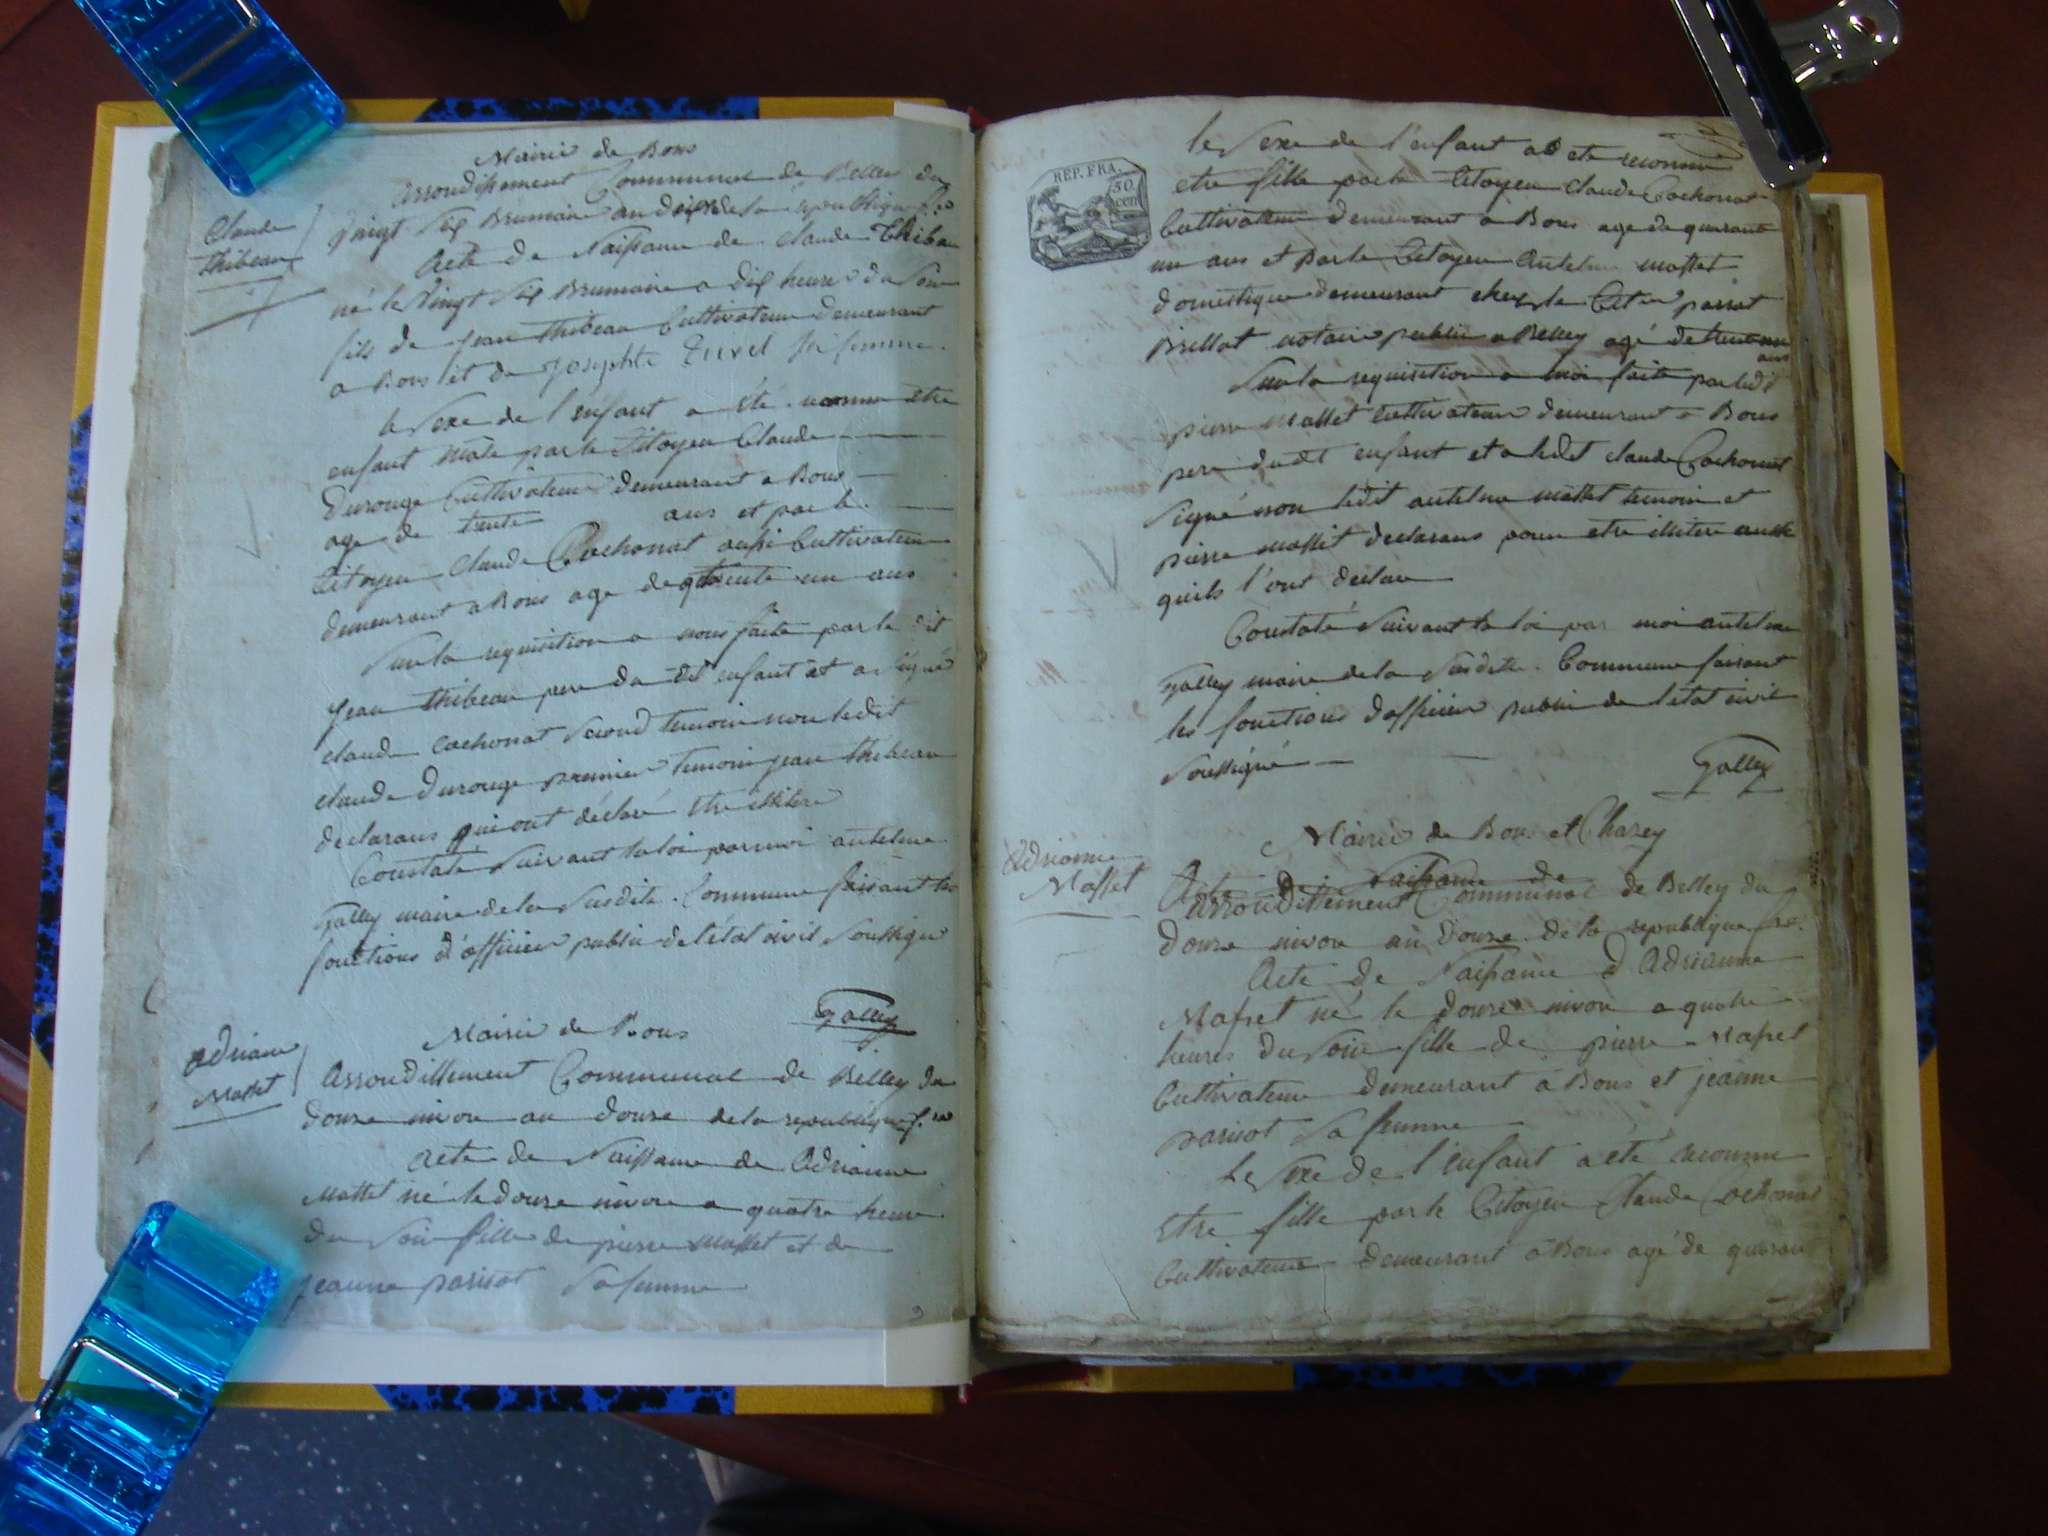 Mairie de Bons
arrondissement Communal de Belley du
Vingt Six Brumaire an de la republique
Claude
thibeau
Acte de Naissance de Claude Thibau
né le Vingt Six Brumaire a dix heures du Soir
fils de jean thibeau Cultivateur demeurant
a Bons et de josephte sa femme
le Sexe de l'enfant a été reconnu etre
enfant male par le Citoyen Claude
Durouge Cultivateur demeurant a Bons
age de trente ans et par le
Citoyen Claude Cochonat aussi Cultivateur
demeurant a Bons age de un ans
Sur la requisition a nous faite par le dit
jean thibeau pere du dit enfant et a signé
claude cochonat Second temoin non ledit
claude Durouge premier temoin jean thibeau
declarans qui ont déclaré etre illitere
Constaté Suivant la loi par moi antelme
Galley maire de la Susdite Commune faisant les
fonctions d'officier public de l'état civil Soussigné
Galley
Mairie de Bons
Adriane
Masset
arrondissement Communal de Belley du
douze nivose an douze de la republique
Acte de Naissance de Adrianne
Masset né le douze nivose a quatre heure
du Soir fille de pierre Masset et de
jeanne parisot Sa femme
REP. FRA.
50
cen
le Sexe de l'enfant a eté reconnu
etre fille par le Citoyen Claude Cochonat
Cultivateur demeurant a Bons age de quarant
un ans et par le Citoyen Antelme Masset
domestique demeurant chez le Citoyen
Brillat notaire public a Belley agé de
ans
Sur la requisition a moi faite par ledit
pierre Masset cultivateur demeurant a Bons
pere dudit enfant et a ledit claude Cochonat
Signé non ledit antelme Masset temoin et
pierre Masset declarans pour etre illitere
quils l'ont declare
Constaté Suivant la loi par moi antelme
Galley maire de la Susdite Commune faisant
les fonctions dofficier public de letat civil
Soussigné
Galley
Mairie de Bons et Chazey
Adrianne
Masset
Acte de Naissance de
arrondissement Communal de Belley du
douze nivose an douze de la republique
Acte de Naissance d Adrianne
Masset né le douze nivose a quatre
heures du Soir fille de pierre Masset
Cultivateur demeurant a Bons et jeanne
parisot Sa femme
Le Sexe de l'enfant a eté reconnu
etre fille par le Citoyen Claude Cochonat
Cultivateur demeurant a Bons agé de quarant